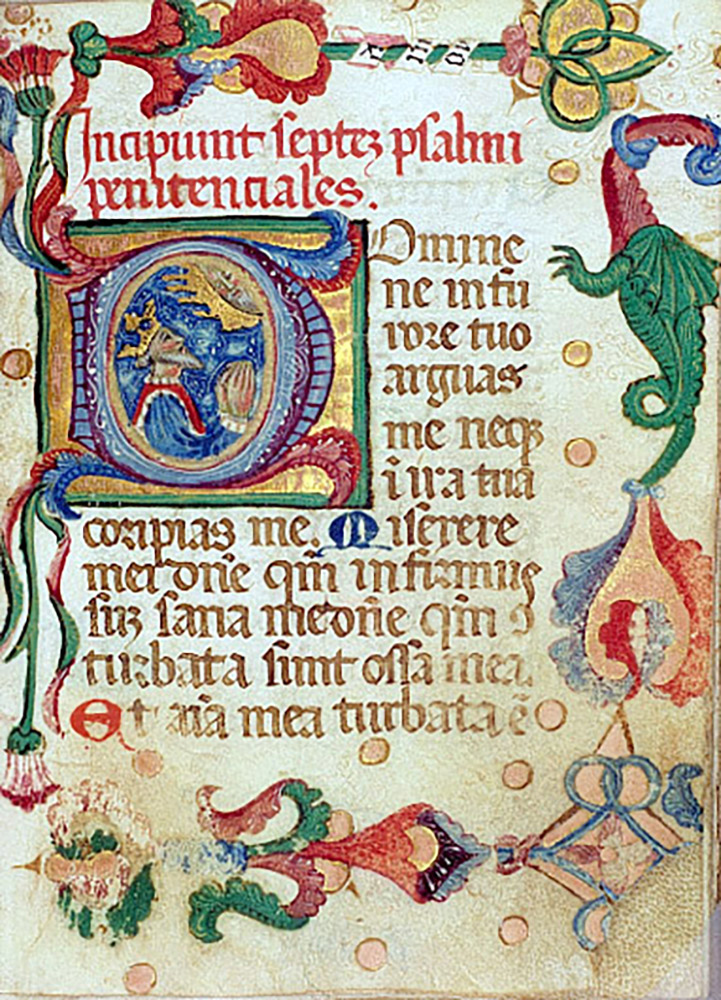 Incipiunt septeʒ psalmi
penitenciales.
Domine
ne in fu
rore tuo
arguas
me neqʒ
ī ira tua
coripias me. Miserere
mei dn̄e qm̄ infirmus
suʒ sana me dn̄e qm̄ ꝯ
turbata sunt ossa mea.
Et aīa mea turbata ē